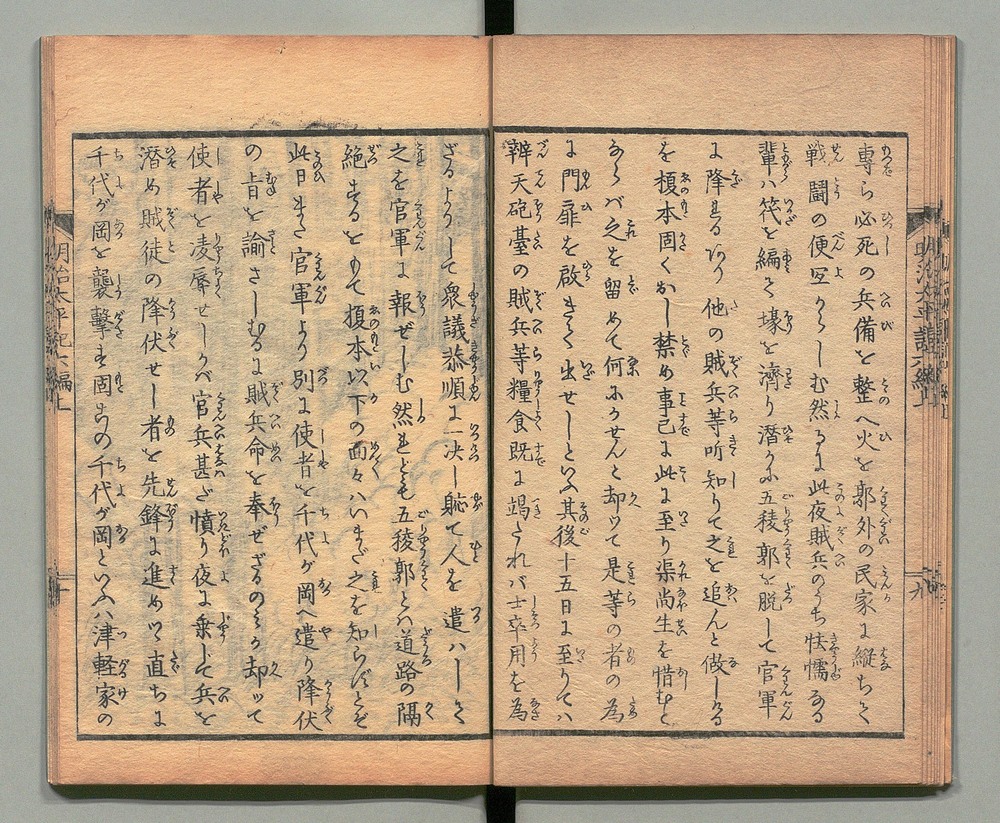 専ら必死の兵備を整へ火を郭外の民家に縦ちて
戦闘の便宜からしむ然るに此夜賊兵のうち怯懦なる
輩ハ筏を編て壕を済り潜かに五稜郭を脱して官軍
に降るあり他の賊兵等听知りて之を追んと做しる
を榎本固くかし禁め事已に此に至り渠尚生を惜むと
ならバ之を留めて何にかせんと却ツて是等の者の為
に門扉を啓きて出せしといふ其後十五日に至りてハ
辨天砲臺の賊兵等糧食既に竭されバ士卒用を為
ざるよりして衆議恭順に一决し耻て人を遣ハして
之を官軍に報ぜしむ然れども五稜郭とハ道路の隔
絶するをもて榎本以下の面々ハいまだ之を知らずとぞ
此日また官軍より別に使者を千代ガ岡へ遣り降伏
の旨を諭さしむるに賊兵命を奉ぜざるのミか却ツて
使者を凌辱せしかバ官兵甚だ憤り夜に乗じて兵を
潜め賊徒の降伏せし者を先鋒に進めツヽ直ちに
千代ガ岡を襲撃す固この千代ガ岡といふハ津軽家の
明治太平記六編上
九
十